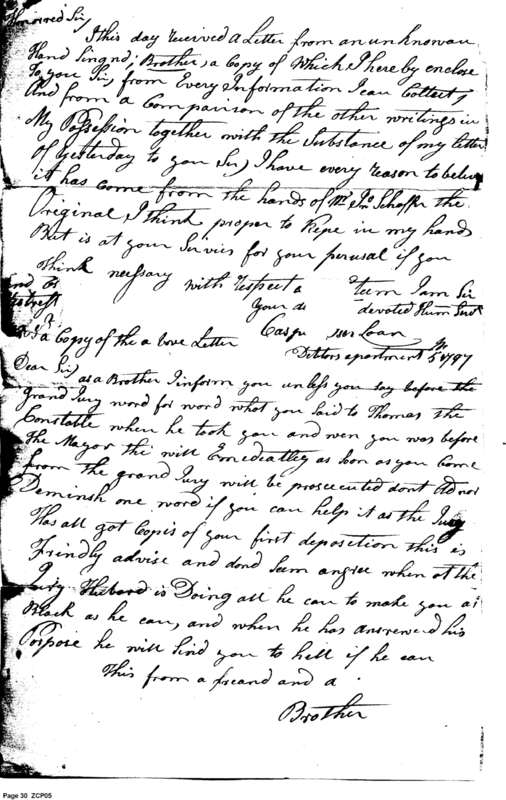 Honored Sir,
I this day received a Letter from an unknowan
Hand Singnd; Brother, a Copy of Which I here by enclose
To you Sir, from Every Information I can Collect,
And from a Comparison of the other writings in
My Possession together with the Substance of my letter
of yesterday to you Sir, I have every reason to believe
it has come from the hands of Mr. Jno. Schaffer the
Original I think proper to Kepe in my hands
But is at your Servics for your perusal if you
think nessary with respect a teem I am Sir
Your de devoted Hum Servt
Caspe Loan
Debtors apartment 5 1797
a Copy of the a bove Letter
Dear Sir,
as a Brother I inform you unless you say before the
Grand Jury word for word what you said to Thomas the
Constable when he took you and wen you was before
the Mayor thi will Emediatley as soon as you Come
from the grand Jury will be prosecuted dont Ad nor
Deminsh one word if you can help it as the Jury
Has all got Copis of your first deposition this is
Frindly advise and dond Seem angree when at the
Jury Husband is Doing all he can to make you as
Black as he can, and when he has answered his
Porpose he will Sind you to hell if he can
This from a freand and a
Brother
Page 30 ZCP05